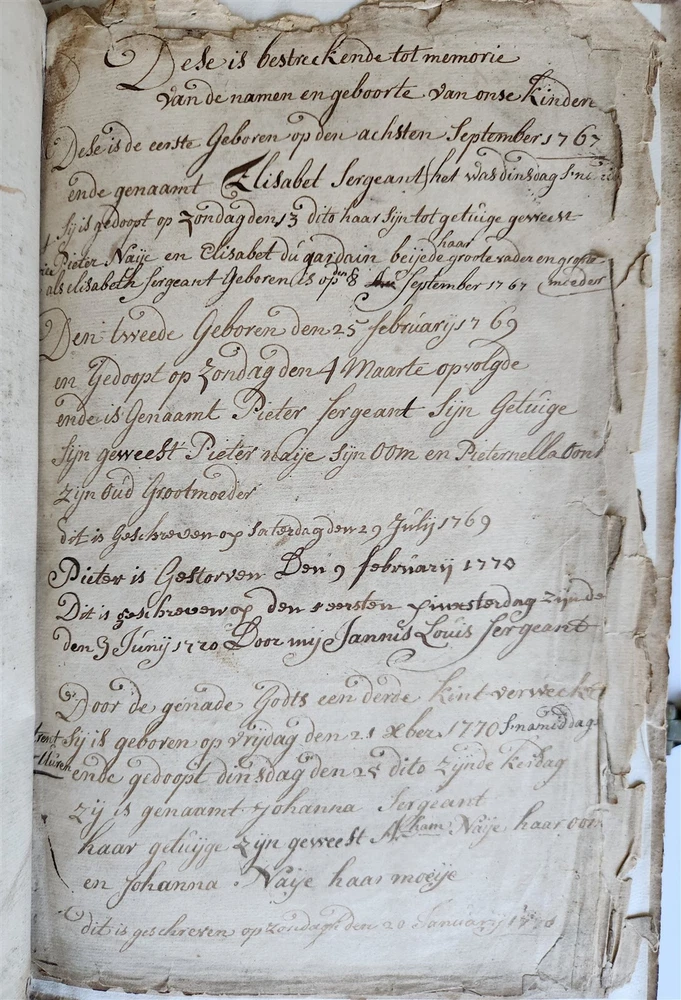 Dese is bestreckende tot memorie
van de namen en geboorte van onse kinderen
Dese is de eerste Geboren op den achsten September 1767
ende genaamt Elisabet Sergeant het was dinsdag
sij is gedoopt op zondag den 13 dito haar sijn tot getuige geweest
Pieter Naije en Elisabet du gardain beijede haar groote vader en groote
als elisabeth Sergeant Geboren is op den 8 September 1767 moeder
Den tweede Geboren den 25 februarij 1769
en Gedoopt op zondag den 4 Maarte opvolgde
ende is Genaamt Pieter Sergeant Sijn Getuige
Sijn geweest Pieter naije sijn oom en Pieternella
zijn oud Grootmoeder
dit is Geschreven op Saterdag den 29 Julij 1769
Pieter is Gestorven Den 9 februarij 1770
Dit is geschreven op den eersten pinxsterdag zijnde
den 3 Junij 1770 Door mij Jannis Louis Sergeant
Door de genade Godts een derde kint verweckt
Sij is geboren op vrijdag den 21 xber 1770 s namiddags
ende gedoopt dinsdag den 25 dito zijnde kersdag
zij is genaamt Johanna Sergeant
haar getuijge zijn geweest Abham Naije haar oom
en Johanna Naije haar moeije
dit is geschreven op zondag den 20 Januarij